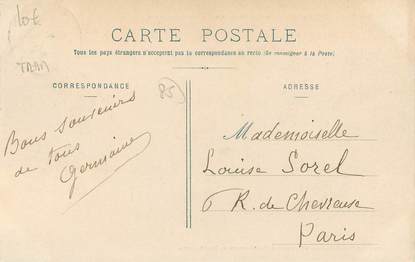 10€
TRAM
CARTE POSTALE
Tous les pays étrangers n'acceptent pas la correspondance au recto (Se renseigner à la Poste)
CORRESPONDANCE
85
Bons souvenirs
de tous
Germaine
ADRESSE
Mademoiselle
Louise Sorel
6 R. de Chevreuse
Paris